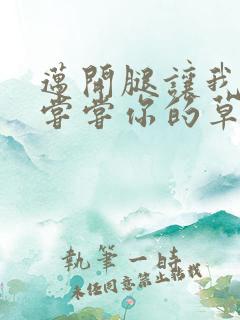 邁開腿讓我
嘗嘗你的草
執筆一時
未經同意禁止轉載